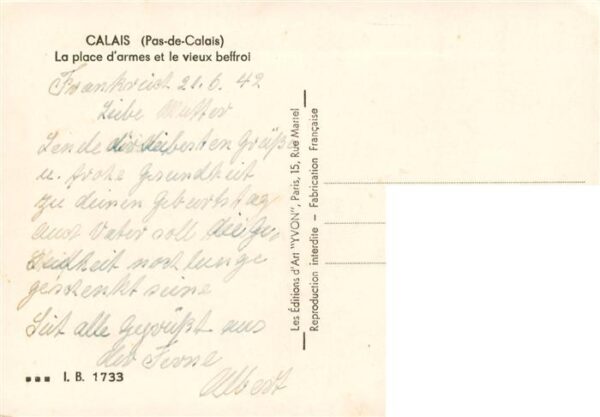 CALAIS (Pas-de-Calais)
La place d'armes et le vieux beffroi
Frankreich 21.6.42
Liebe Mutter
Sende dir die besten Grüße
u. frohe Gesundheit
zu deinen Geburtstag
auch Vater soll die Ge-
sundheit noch lange
geschenkt seine
Seit alle Gegrüßt aus
der Ferne
Albert
I. B. 1733
Les Éditions d'Art "YVON", Paris, 15, Rue Martel
Reproduction interdite - Fabrication Française